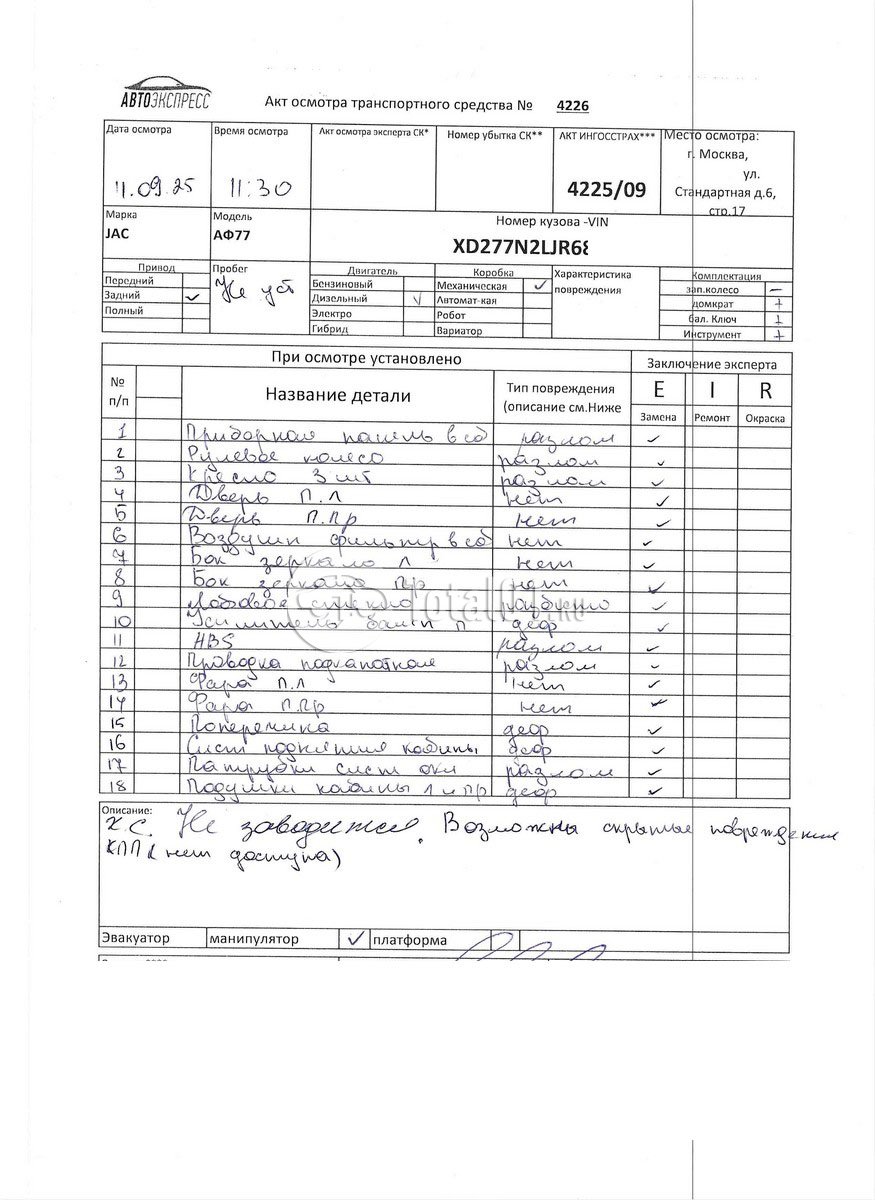 АВТОЭКСПРЕСС
Акт осмотра транспортного средства № 4226
Дата осмотра
Время осмотра
Акт осмотра эксперта СК*
Номер убытка СК**
АКТ ИНГОССТРАХ***
Место осмотра:
г. Москва,
ул.
Стандартная д.6,
стр.17
11.09.25
11:30
4225/09
Марка
JAC
Модель
АФ77
Номер кузова -VIN
XD277N2LJR68
Привод
Передний
Задний ✓
Полный
Пробег
Не уст
Двигатель
Бензиновый
Дизельный V
Электро
Гибрид
Коробка
Механическая ✓
Автомат-кая
Робот
Вариатор
Характеристика
повреждения
Комплектация
зап.колесо —
домкрат +
бал. Ключ +
Инструмент +
При осмотре установлено
Заключение эксперта
№
п/п
Название детали
Тип повреждения
(описание см.Ниже
E I R
Замена Ремонт Окраска
1 Приборная панель в сб разлом ✓
2 Рулевое колесо разлом ✓
3 Кресло 3 шт разлом ✓
4 Дверь П.Л нет ✓
5 Дверь П.Пр нет ✓
6 Воздушн фильтр в сб нет ✓
7 Бок зеркало Л нет ✓
8 Бок зеркало Пр нет ✓
9 Лобовое стекло разбито ✓
10 Усилитель бамп П деф ✓
11 ABS разлом ✓
12 Проводка подкапотная разлом ✓
13 Фара П.Л нет ✓
14 Фара П.Пр нет ✓
15 Поперечина деф ✓
16 Сист поднятия кабины деф ✓
17 Патрубки сист охл разлом ✓
18 Подушки кабины Л и Пр деф ✓
TotalCar.RU
Описание:
Х.С. Не заводится. Возможны скрытые повреждения
КПП (нет доступа)
Эвакуатор манипулятор ✓ платформа